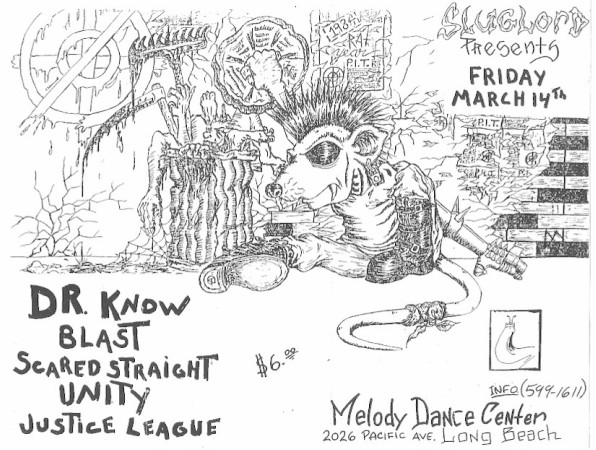 SLUGLORD
Presents
FRIDAY
MARCH 14TH
1984
RAT
Year
P.I.T.
P.I.T.
DR. KNOW
BLAST
SCARED STRAIGHT
UNITY
JUSTICE LEAGUE
$6.00
INFO (599-1611)
Melody Dance Center
2026 PACIFIC AVE. Long Beach